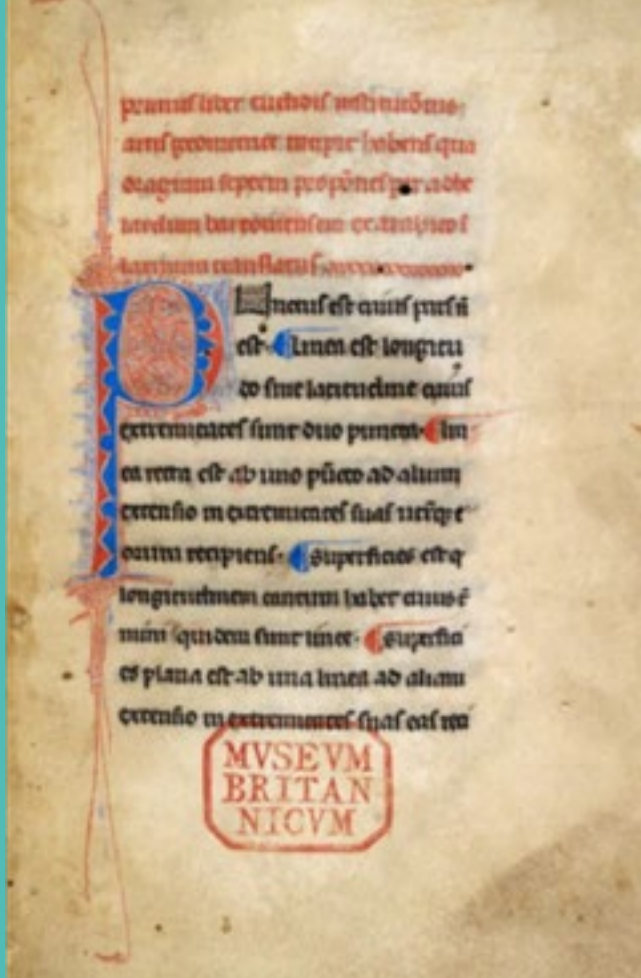 primus liber euclidis institucōnis
artis geometrice incipit habens qua
septem propōnes per adhe
lardum ex arabico i
latinum translatus
Punctus est cuius pars n̄
est. Linea est longitu
do sine latitudine cuius
extremitates sunt duo puncta. lin
ea recta est ab uno pūcto ad alium
extensio in extremitates suas
orum recipiens. Superficies est q
longitudinem tantum habet cuius t̄
mini quidem sunt linee. Superfici
es plana est ab una linea ad aliam
extensio in extremitates suas eas reci
MVSEVM
BRITAN
NICVM